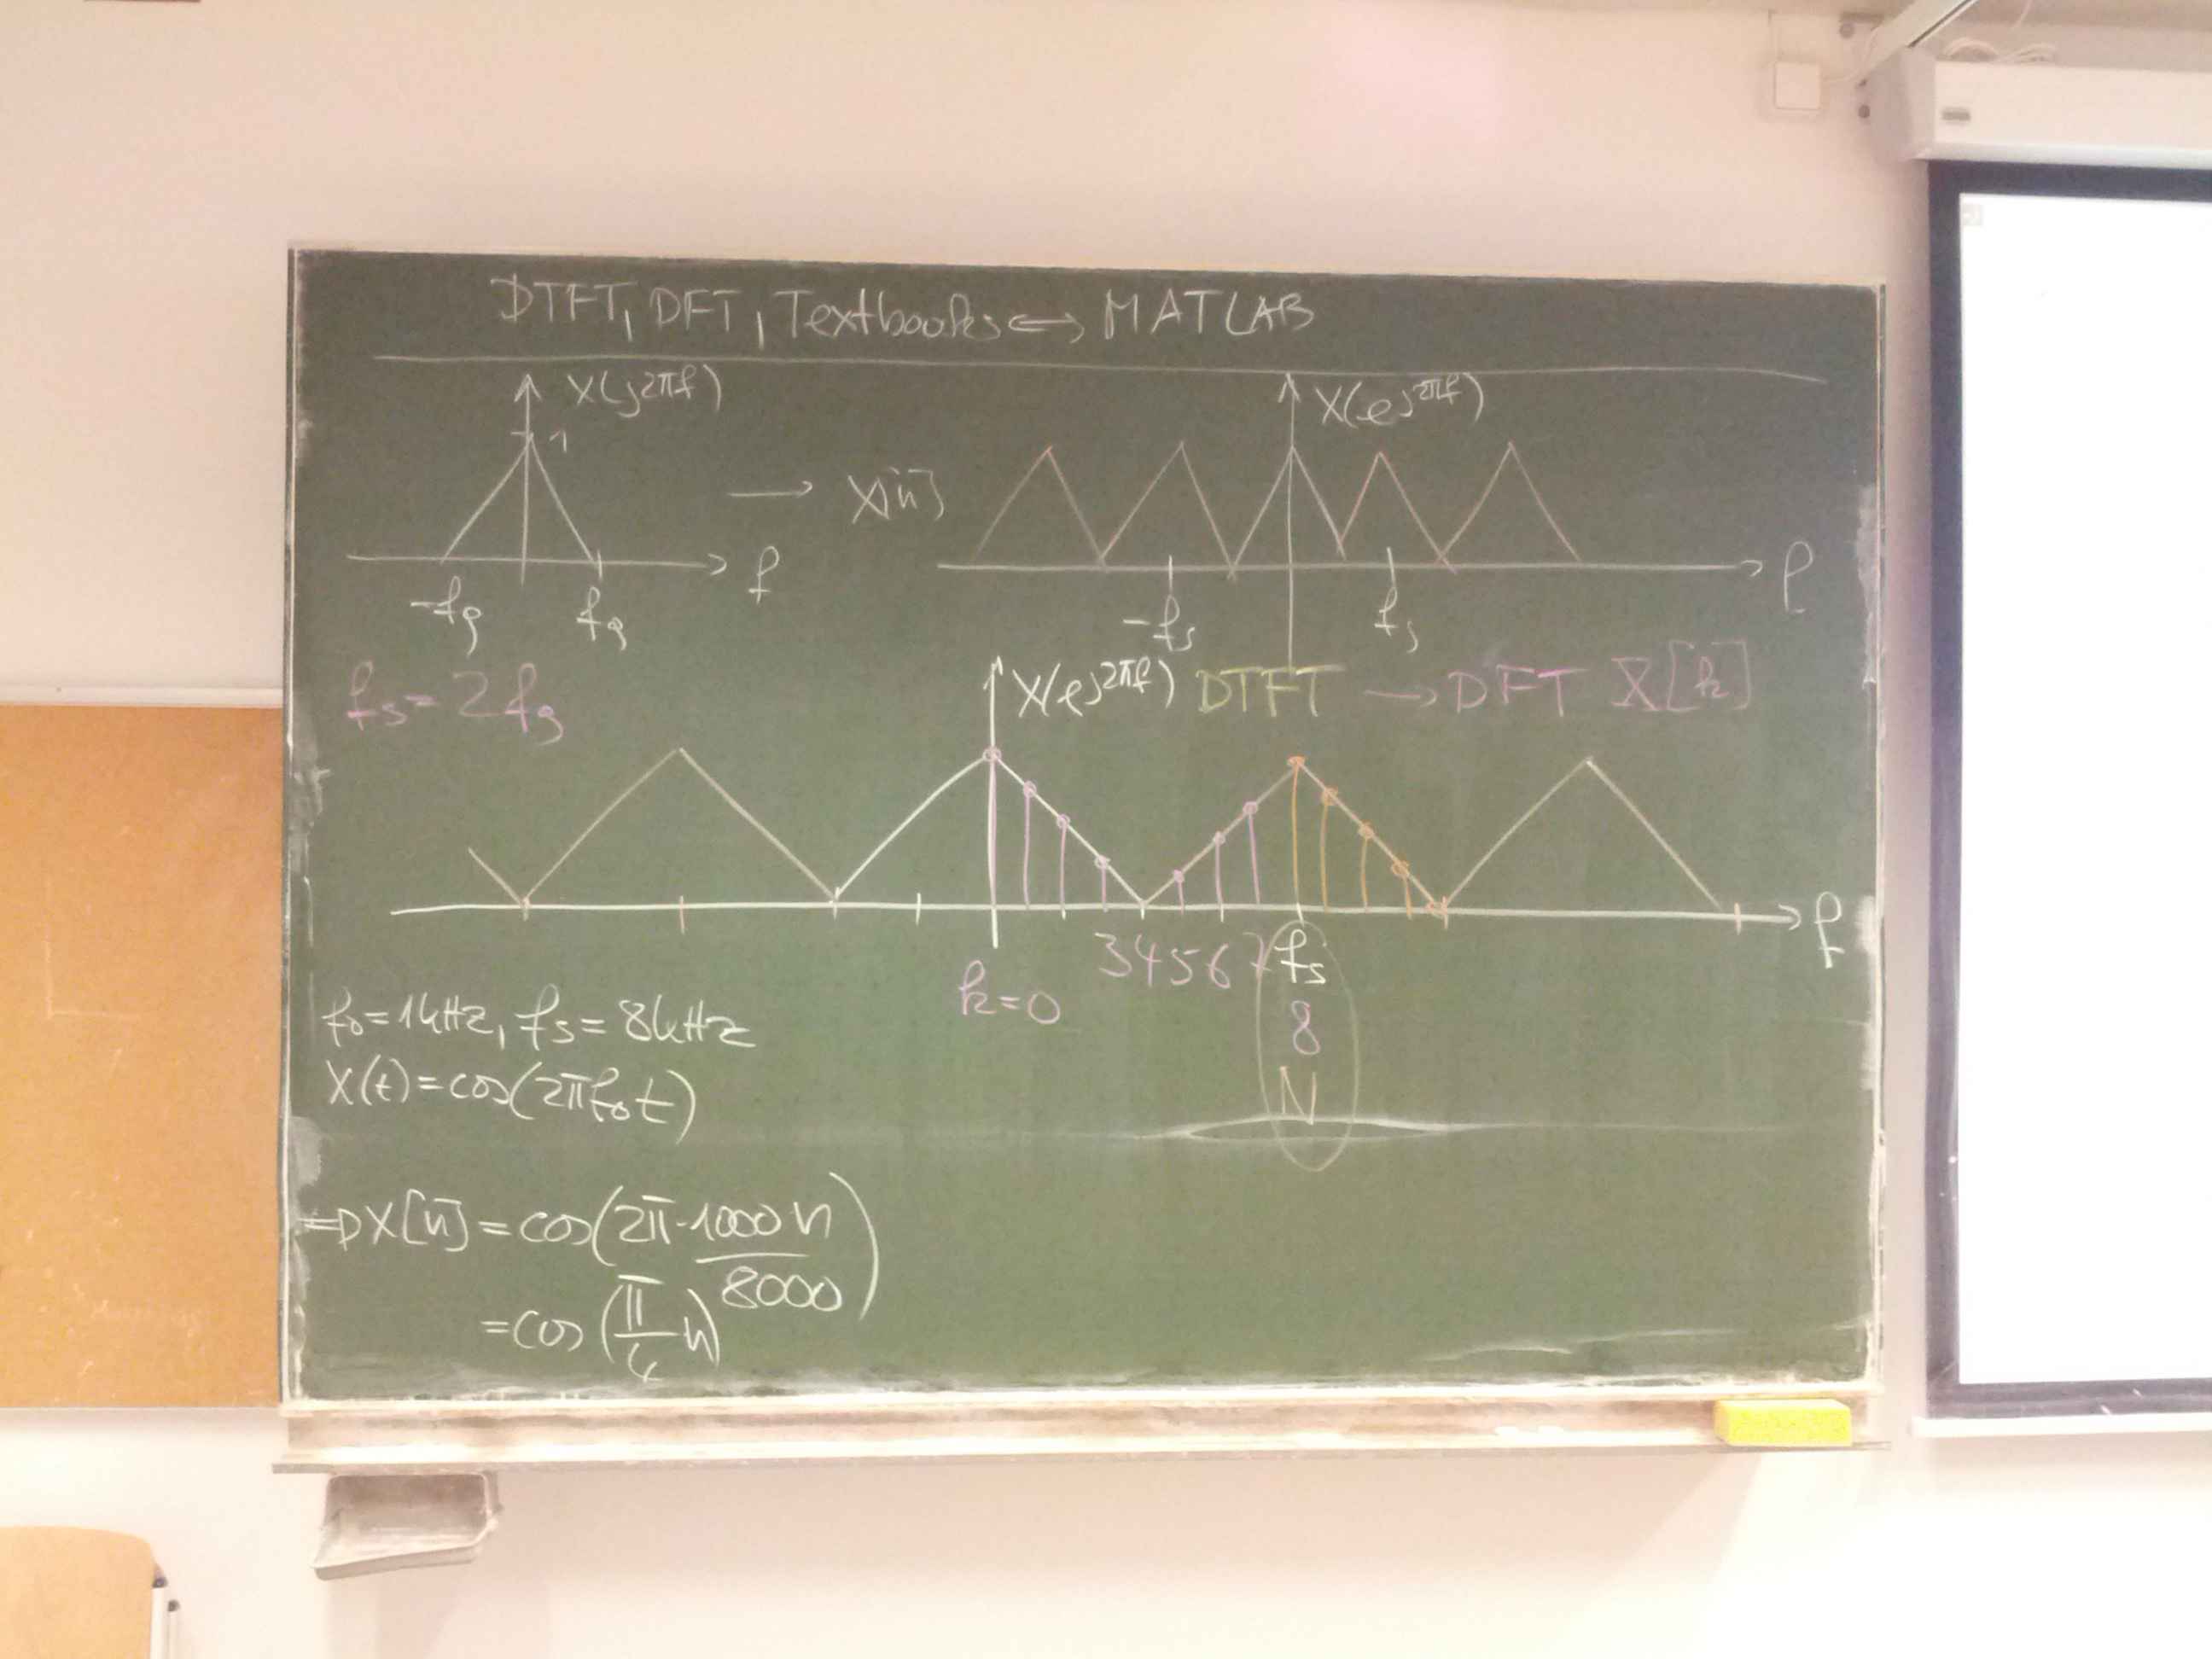 DTFT, DFT, Textbooks ⟺ MATLAB
X(j2πf)
1
-fg fg f
→ X[n]
X(e^j2πf)
-fs fs f
fs = 2fg
X(e^j2πf) DTFT → DFT X[k]
f
k=0 3 4 5 6 7 fs
8
N
f0 = 1kHz, fs = 8kHz
X(t) = cos(2πf0t)
=D X[n] = cos(2π·1000n/8000)
= cos(π/4 n)